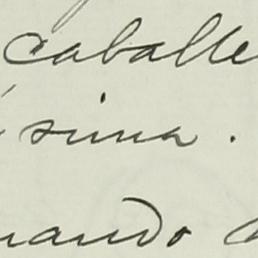 caballe
sima.
uando